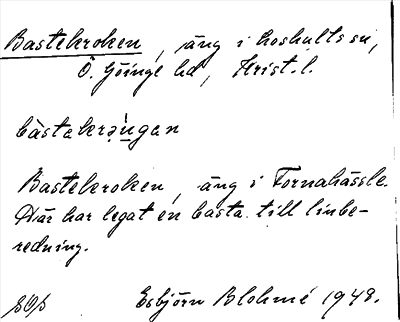 Bastekroken, äng i Loshults sn,
Ö. Göinge hd, Krist. l.
Bastekroken, äng i Tornahässle.
Här har legat en basta till linbe-
redning.
Esbjörn Blohmé 1948.